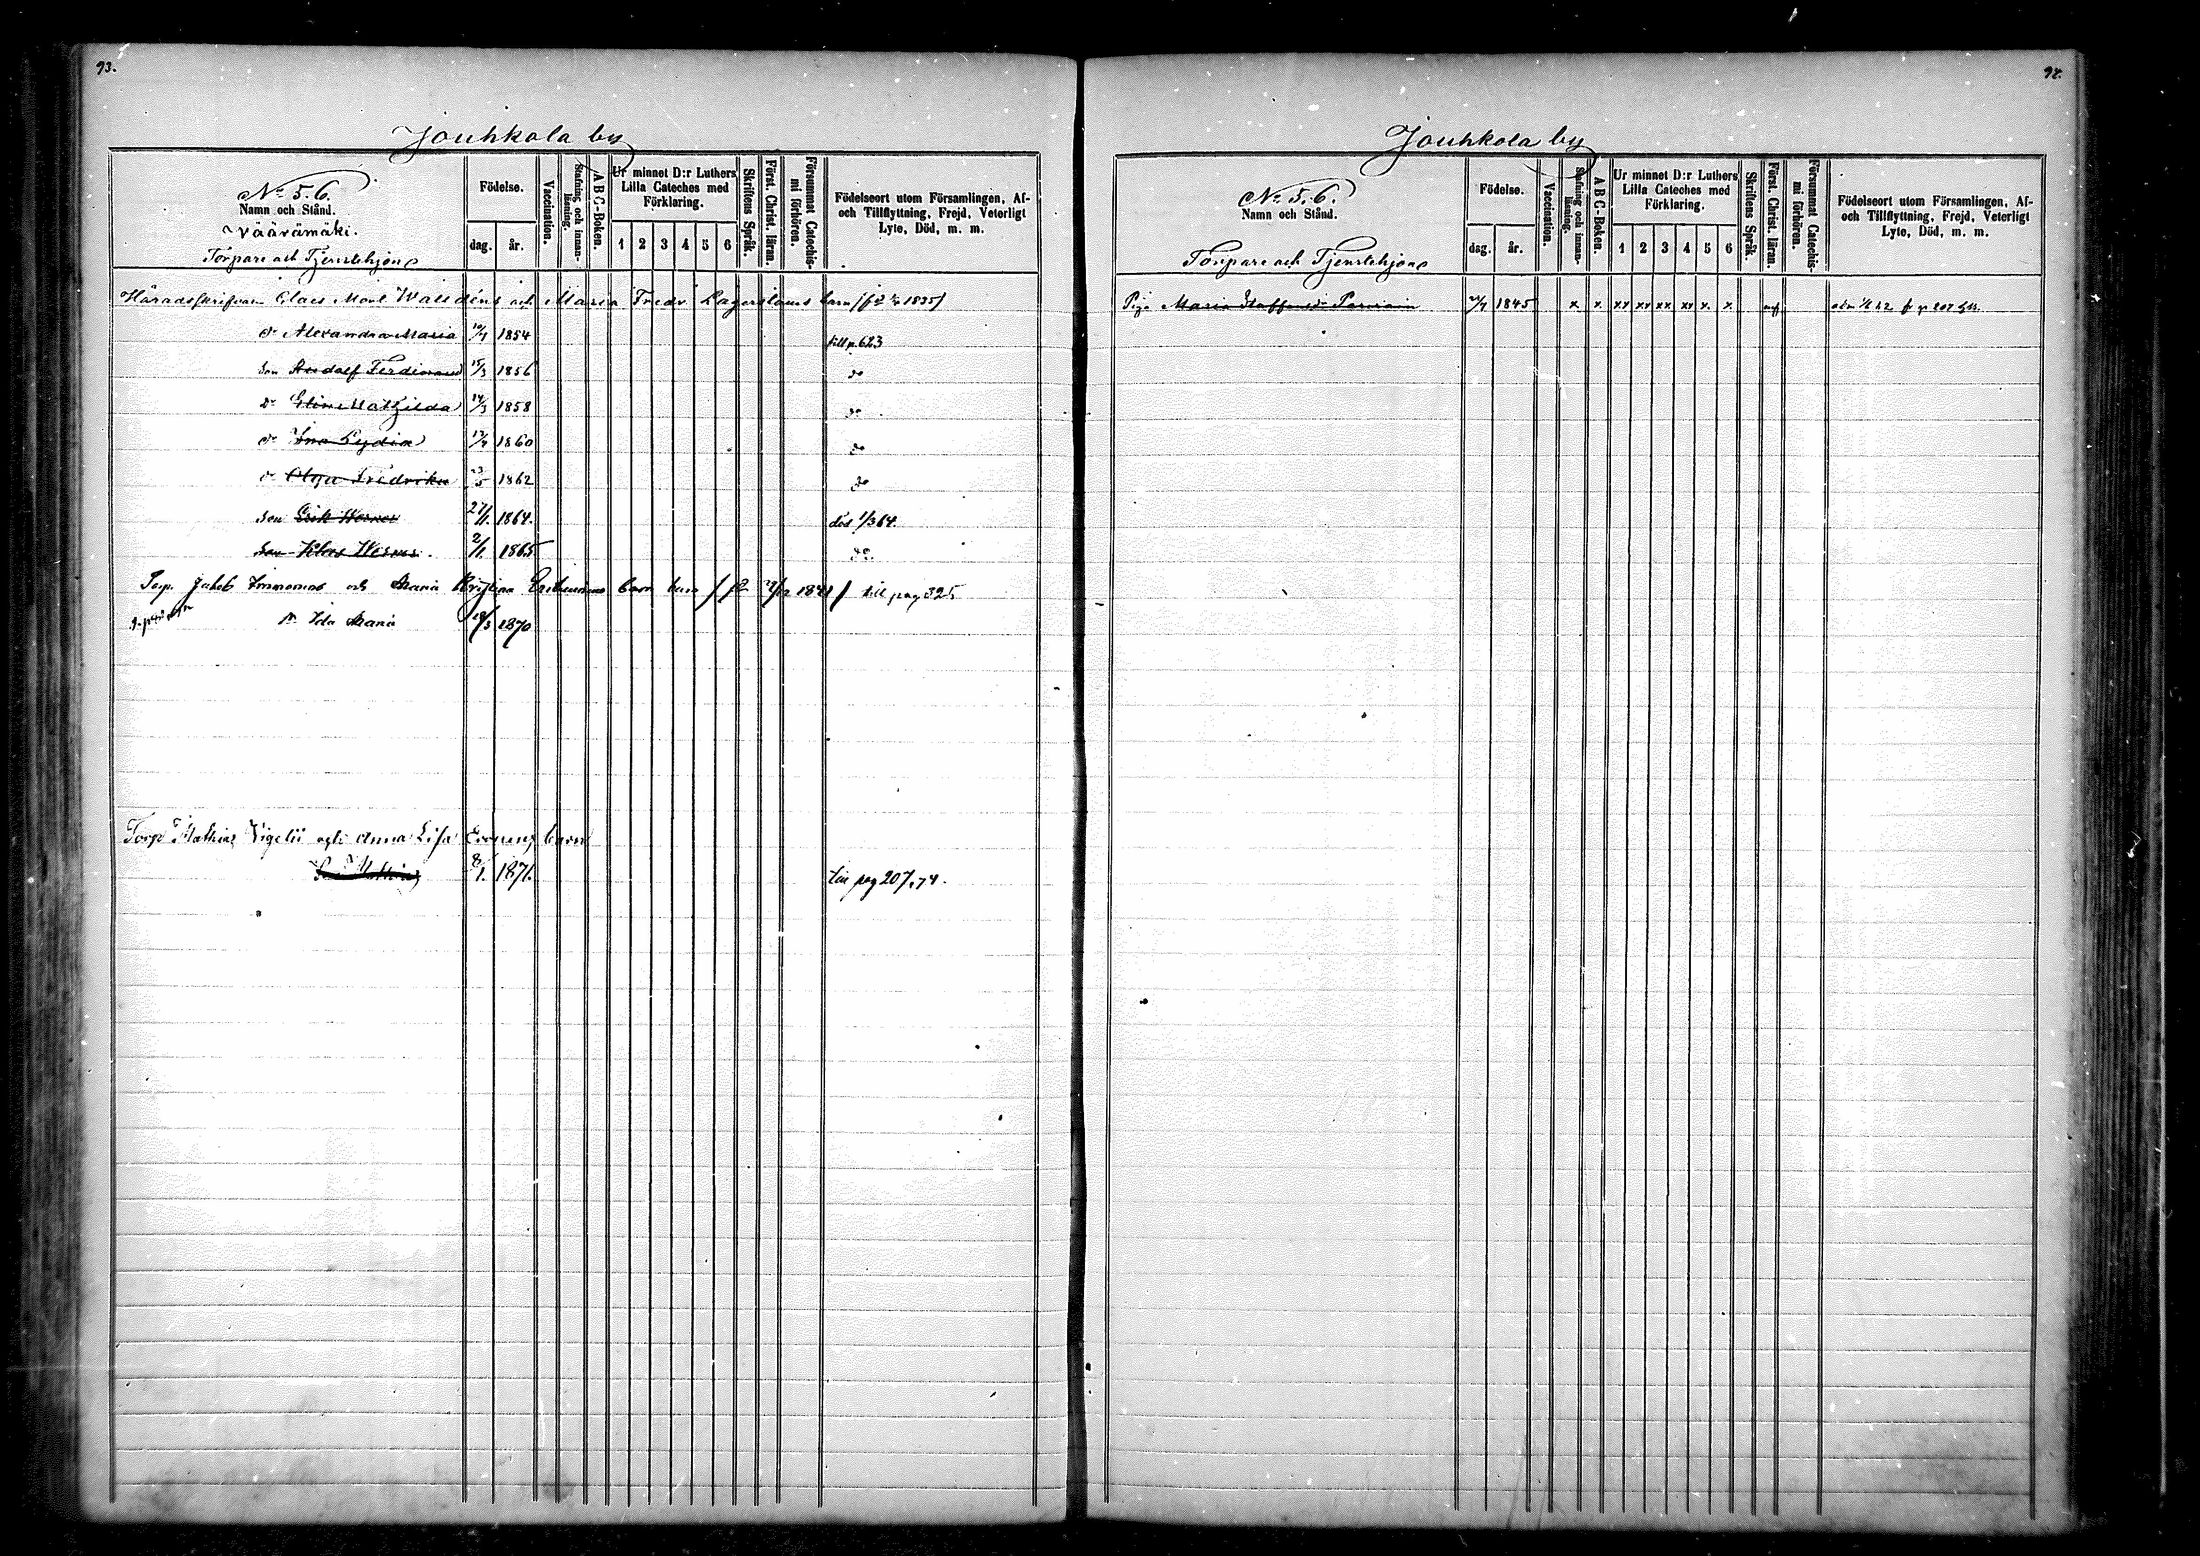 93.
Jouhkola by
No 5. 6.
Namn och Stånd.
Väärämäki.
Torpare och Tjenstehjon
Födelse.
dag. år.
Vaccination.
Stafning och innan-läsning.
A B C-Boken.
Ur minnet D:r Luthers
Lilla Cateches med
Förklaring.
1 2 3 4 5 6
Skriftens Språk.
Först. Christ. läran.
Försummat Catechis-mi förhören.
Födelseort utom Församlingen, Af-
och Tillflyttning, Frejd, Veterligt
Lyte, Död, m. m.
Häradsskrifvaren Claes Walldéns och Maria Fredr. Lagerstams barn 1835)
dr Alexandra Maria 1854 till p. 623
Son Ferdinand 15/3 1856 do
dr Mathilda 14/3 1858 do
dr Lydia 1860 do
dr Olga Fredrika 23/5 1862 do
Son Erik Werner 27/1. 1864. död 1/3 64.
Son Klas Werner. 2/1. 1865 do.
Torp. Jakob Immonens och Maria Kristina barn 1841) till pag 325
dr Ida Maria 1870
Torp Mathias Vigelii och Anna Lisa barn
Son Mathias 8/1. 1871. till pag 207, 74.
94.
Jouhkola by
No 5. 6.
Namn och Stånd.
Torpare och Tjenstehjon
Födelse.
dag. år.
Vaccination.
Stafning och innan-läsning.
A B C-Boken.
Ur minnet D:r Luthers
Lilla Cateches med
Förklaring.
1 2 3 4 5 6
Skriftens Språk.
Först. Christ. läran.
Försummat Catechis-mi förhören.
Födelseort utom Församlingen, Af-
och Tillflyttning, Frejd, Veterligt
Lyte, Död, m. m.
Piga Maria Staffansdr 1845 x x xx xx xx xx x x